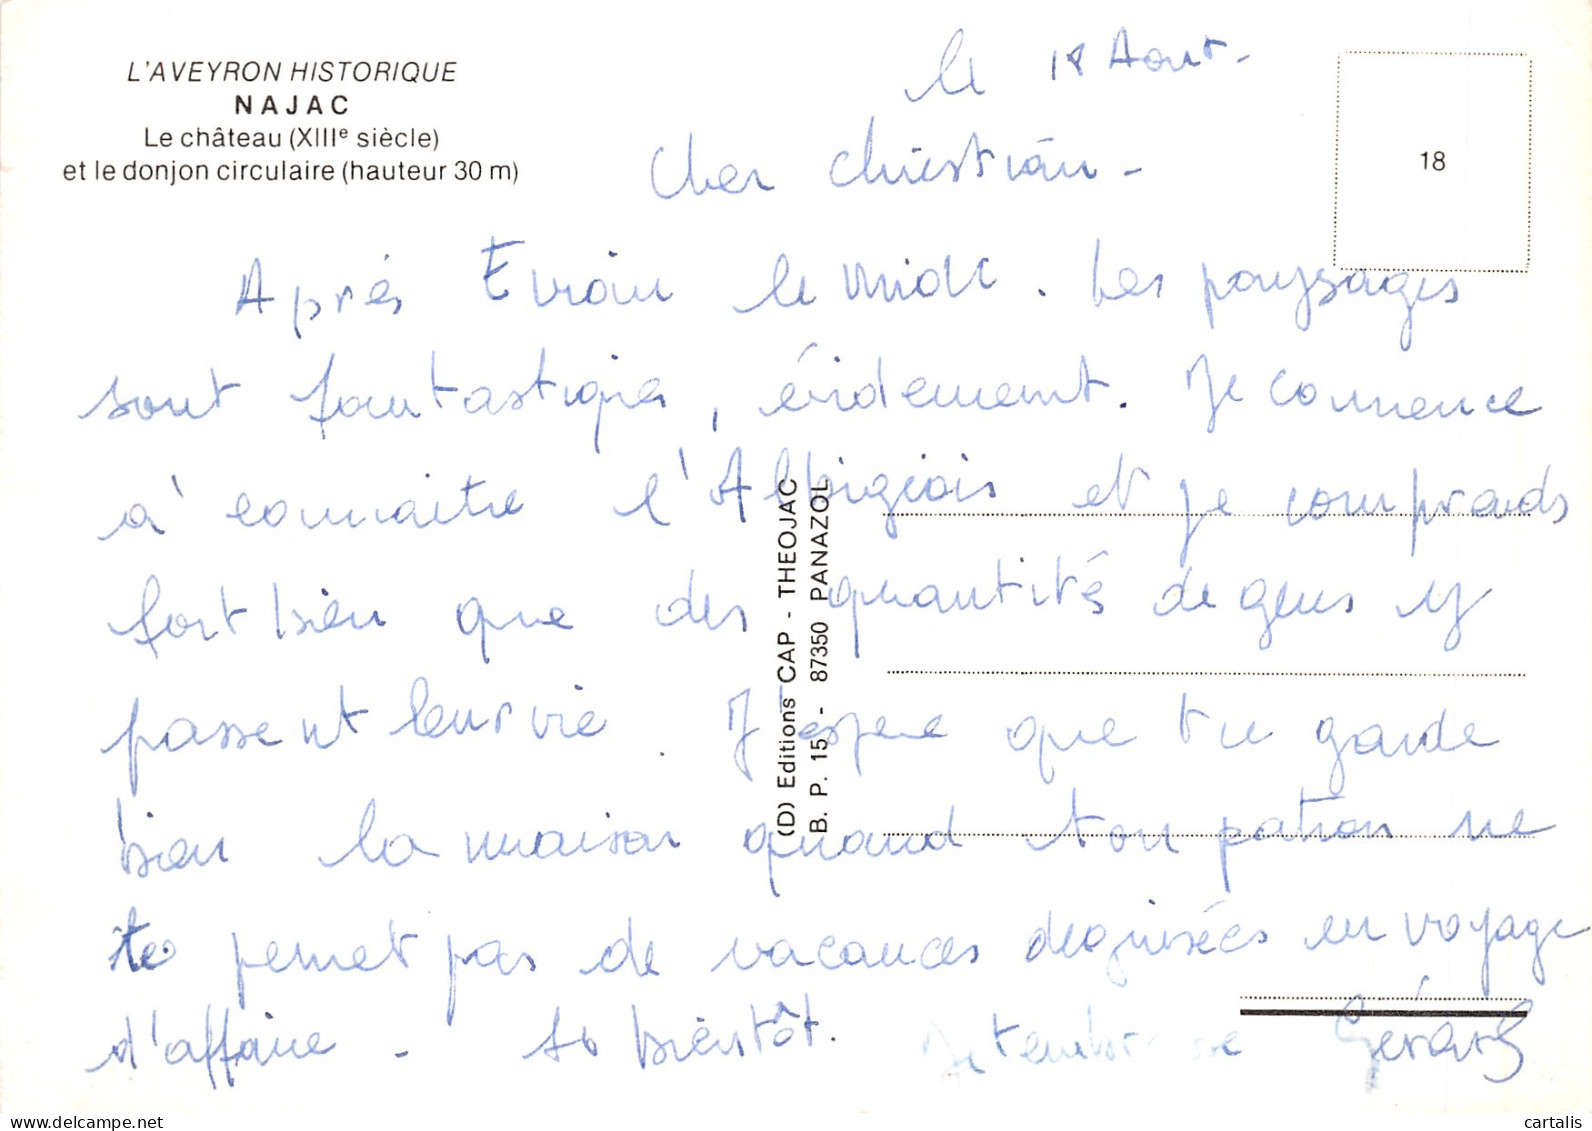 L'AVEYRON HISTORIQUE
NAJAC
Le château (XIIIe siècle)
et le donjon circulaire (hauteur 30 m)
18
le 18 Aout.
Cher Christian -
Après le midi. Les paysages
sont fantastiques, évidement. Je commence
à connaitre l'Albigeois et je comprends
fort bien que des quantités de gens y
passent leur vie. J'espere que tu garde
bien la maison quand ton patron ne
te permet pas de vacances deguisées en voyage
d'affaire - A bientôt. Je t'embrasse Gérard
(D) Editions CAP - THEOJAC
B. P. 15 - 87350 PANAZOL
www.delcampe.net
cartalis